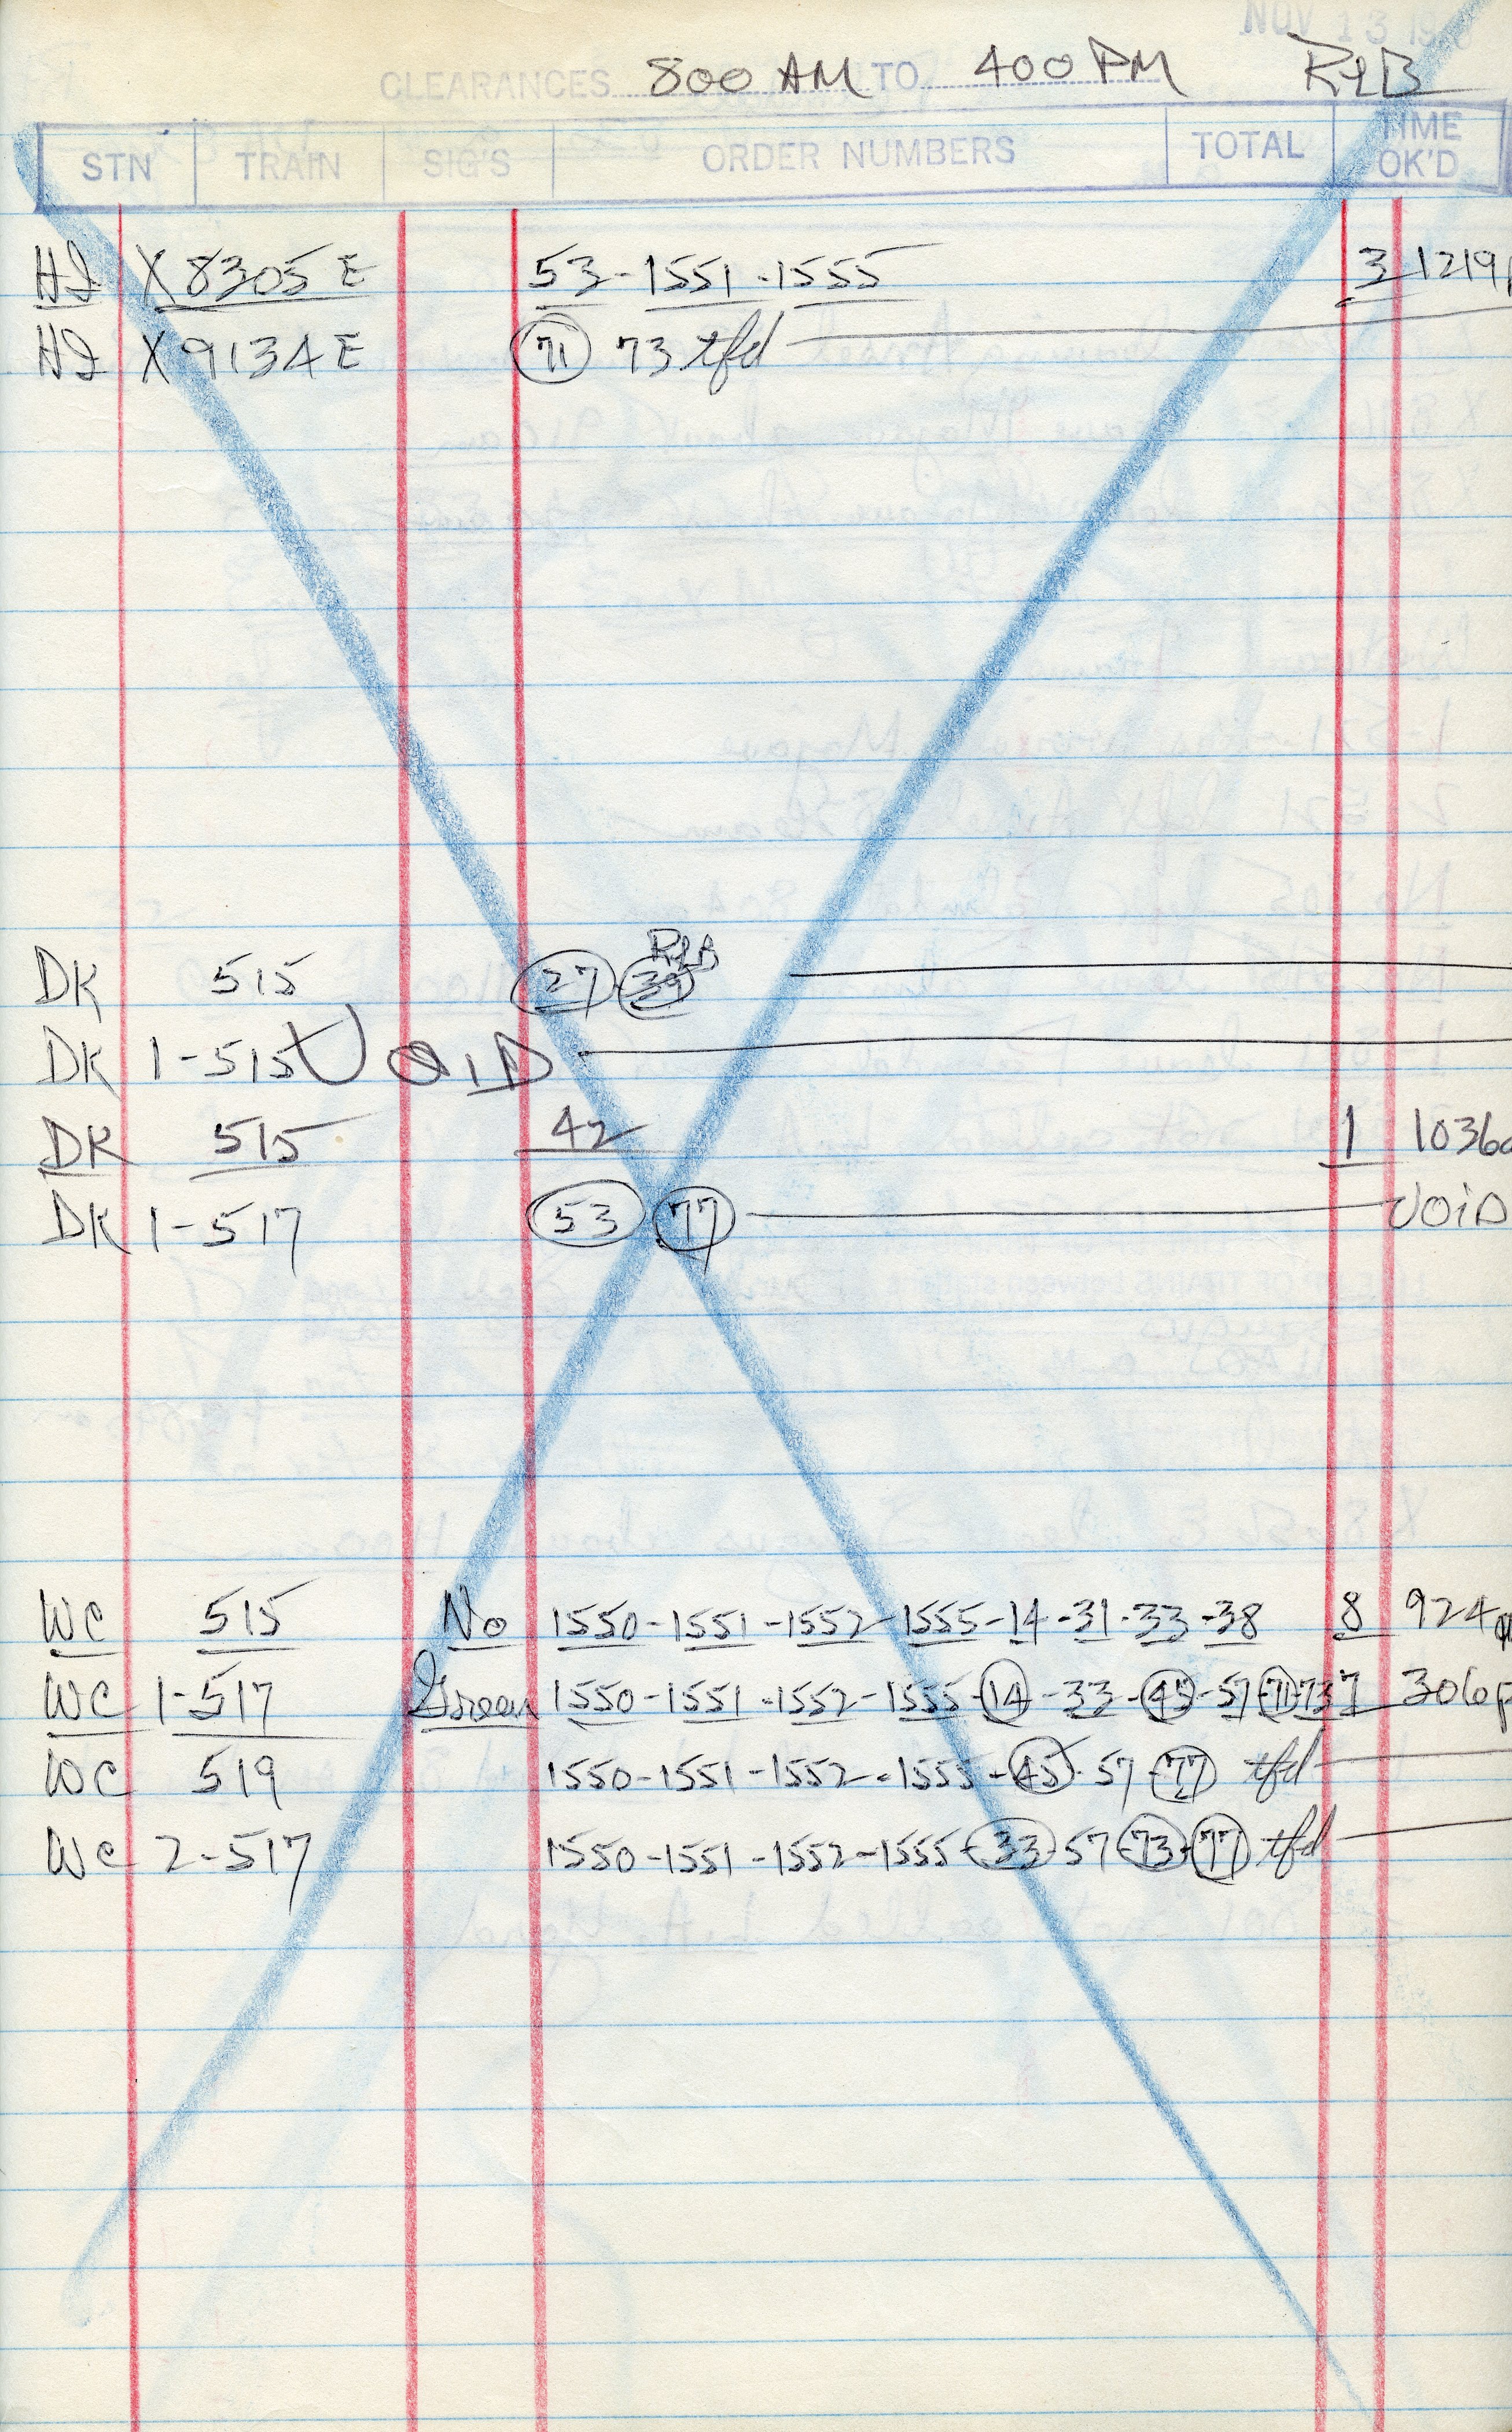 NOV 13 19
CLEARANCES 800 AM TO 400 PM RLB
STN TRAIN SIG'S ORDER NUMBERS TOTAL TIME OK'D
HI X 8305 E 53-1551-1555 3 1219p
HI X 9134 E 71 73 tfd
RLB
DK 515 27 39
DK 1-515 VOID
DK 515 42 1 1036a
DK 1-517 53 77 VOID
WC 515 No 1550-1551-1552-1555-14-31-33-38 8 924a
WC 1-517 Green 1550-1551-1552-1555-14-33-45-57-71-73 7 306p
WC 519 1550-1551-1552-1555-45-57-77 tfd
WC 2-517 1550-1551-1552-1555-33-57-73-77 tfd